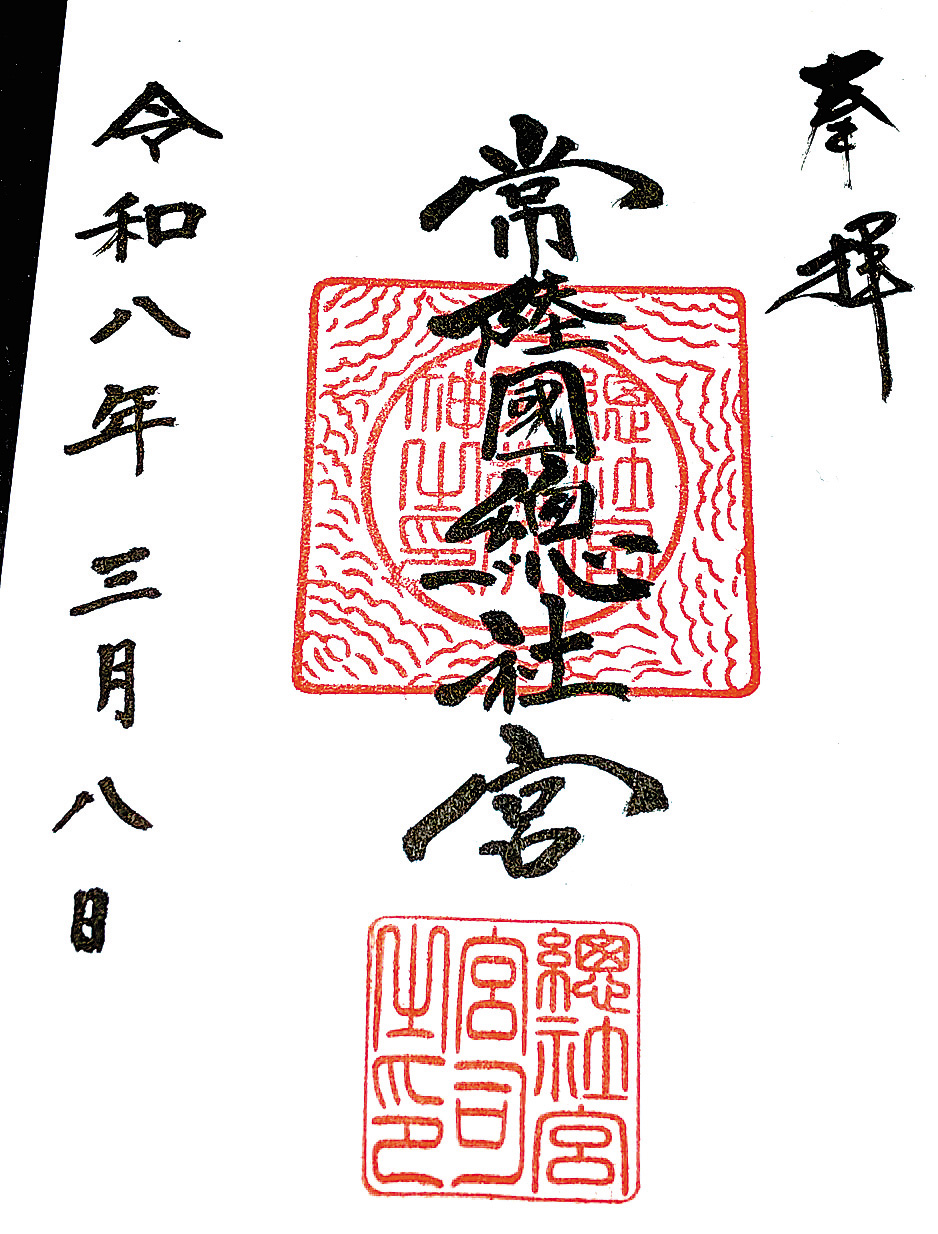 奉拝
常陸國總社宮
令和八年 三月八日
總社宮
宮司
之印